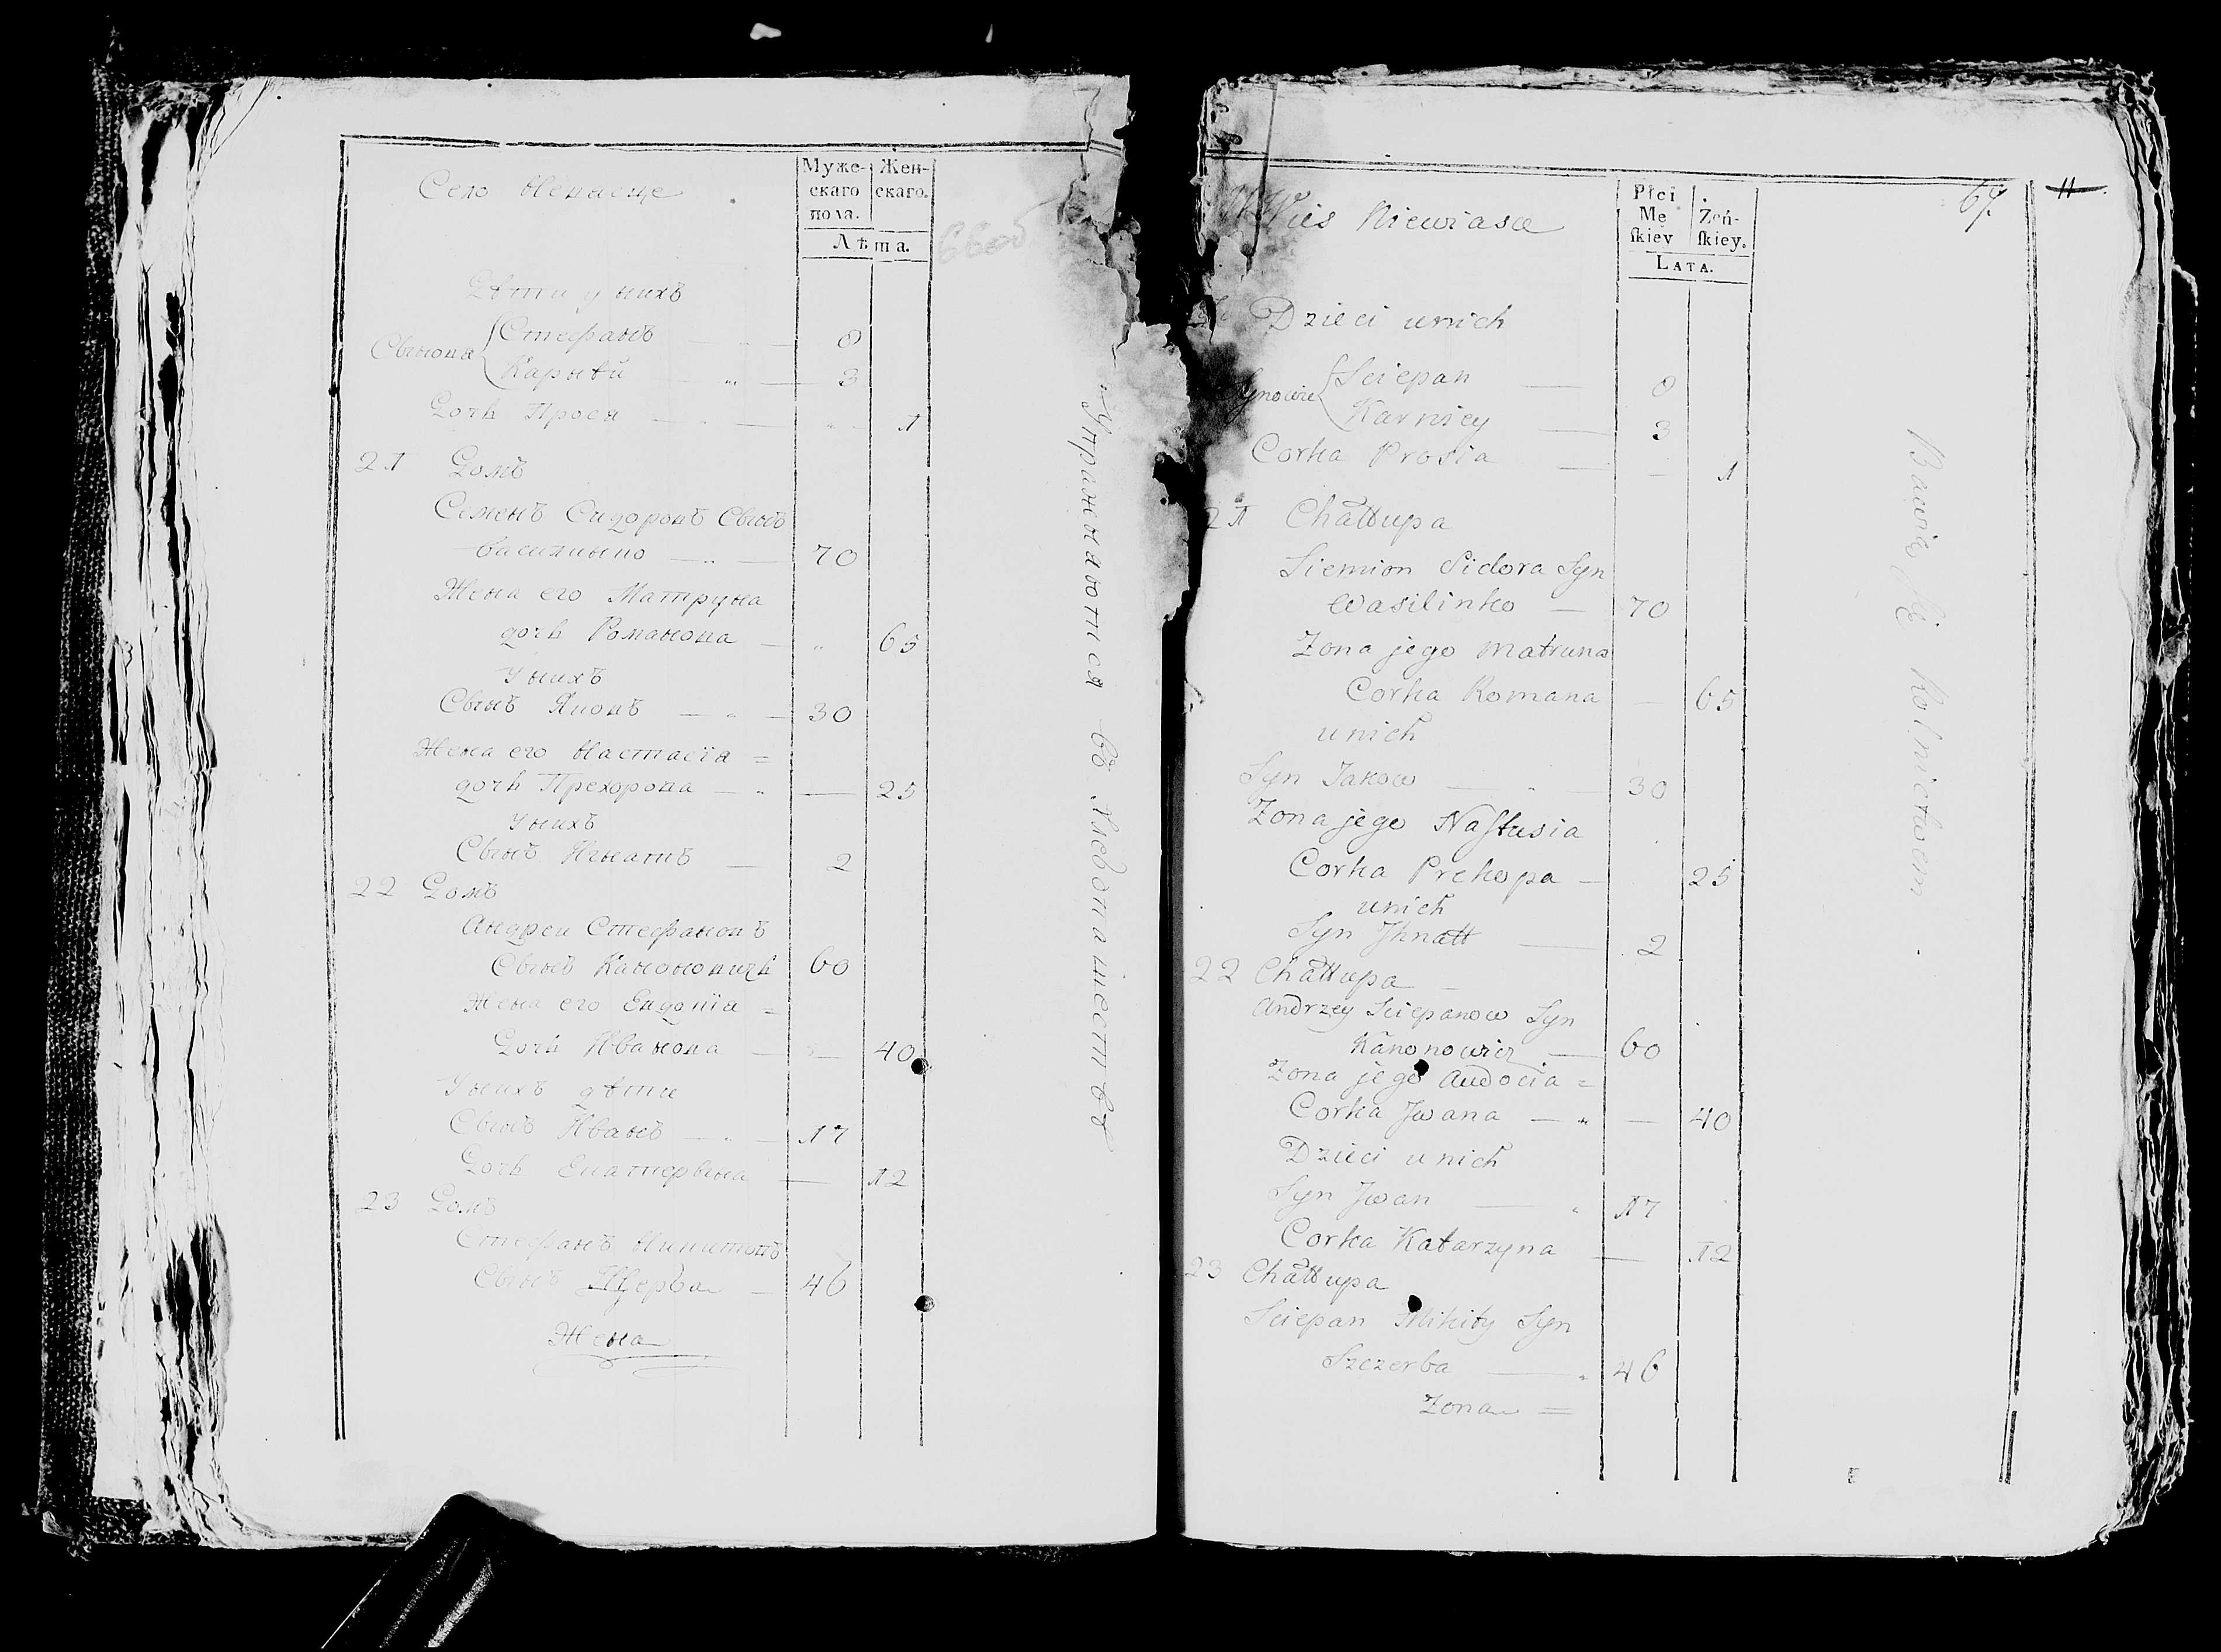 Село Невясце
Муже-
скаго
пола.
Жен-
скаго.
Лѣта.
66об
Дѣти у нихъ
Стефанъ — 8
Сыновя
Карнѣй — 3
Дочь Прося — 1
21 Домъ
Семенъ Сидоровъ Сынъ
Василинко — 70
Жена его Матруна
дочь Романова — 65
У нихъ
Сынъ Яковъ — 30
Жена его Настасія =
дочь Прехорова — 25
У нихъ
Сынъ Игнатъ — 2
22 Домъ
Андреи Стефановъ
Сынъ Канонович 60
Жена его Евдокія =
Дочь Иванова — 40
У нихъ дѣти
Сынъ Иванъ — 17
Дочь Екатерина — 12
23 Домъ
Стефанъ Никитовъ
Сынъ Щерба — 46
Жена
Упражняются въ хлебопашестве
Wies Niewiasce
Płci
Mę
skiey
Zeń-
skiey.
LATA.
67.
11
Dzieci unich
Sciepan — 8
Synowie
Karniey — 3
Corka Prosia — 1
21 Chałłupa
Siemion Sidora Syn
Wasilinko — 70
Zona jego Matruna
Corka Romana — 65
unich
Syn Jakow — 30
Zona jego Nastusia
Corka Prekopa — 25
unich
Syn Jhnatt — 2
22 Chałłupa
Andrzey Sciepanow Syn
Kanonowicz — 60
Zona jego Audocia =
Corka Jwana — 40
Dzieci unich
Syn Jwan — 17
Corka Katarzyna — 12
23 Chałłupa
Sciepan Mikity Syn
Szczerba — 46
Zona =
Bawią się Rolnictwem.